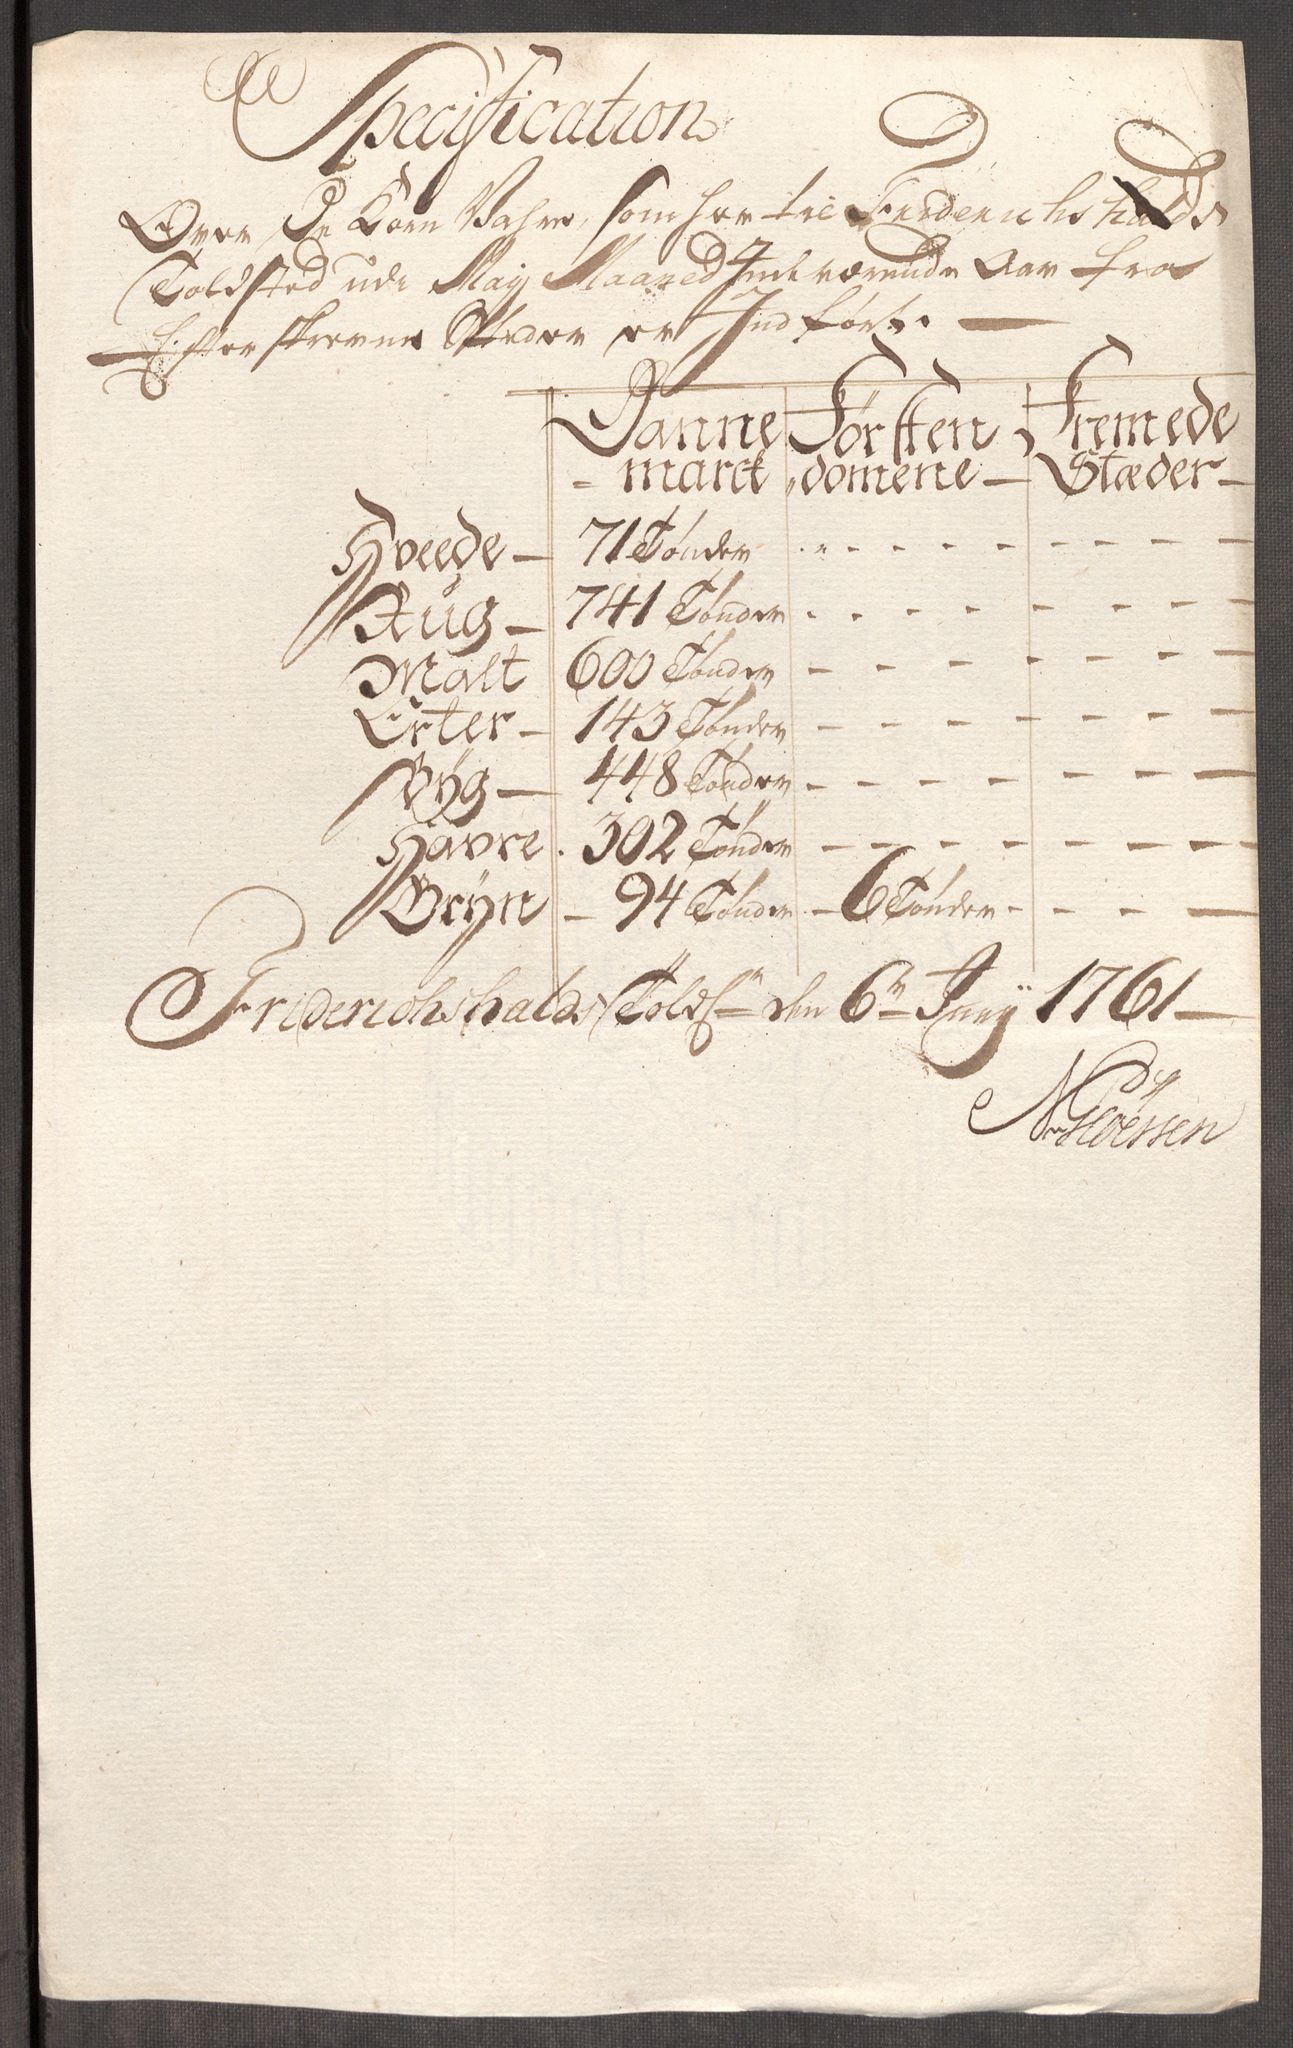 Specification
Over De Korn Vahre, som her til Friderichshalds
Toldsted udi Maij Maaned Indeværende Aar fra
Efterskrevne Stæder er Indført.
Danne Førsten Fremede
marck domene Stæder
Hveede 71 Tønder
Rug 741 Tønder
Malt 600 Tønder
Erter 143 Tønder
Byg 448 Tønder
Havre 302 Tønder
Gryn 94 Tønder 6 Tønder
Friderichshalds Told den 6te Junij 1761